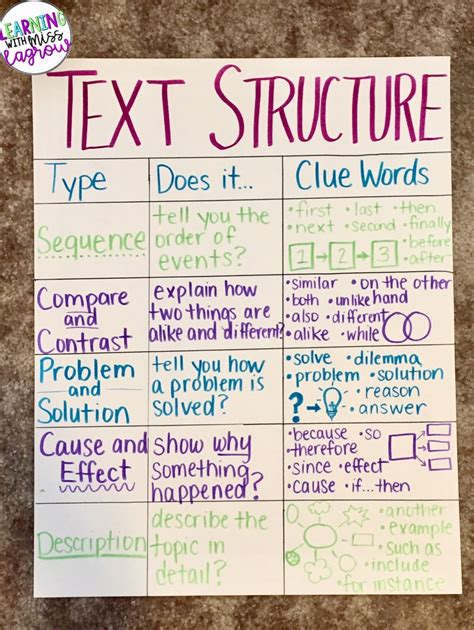 LEARNING
WITH MISS
LAGROW
TEXT STRUCTURE
Type
Does it...
Clue Words
Sequence
tell you the
order of
events?
• first • last • then
• next • second • finally
1 2 3
• before
• after
Compare
and
Contrast
explain how
two things are
alike and different?
• similar • on the other
• both • unlike hand
• also • different
• alike • while
Problem
and
Solution
tell you how
a problem is
solved?
• solve • dilemma
• problem • solution
? • reason
• answer
Cause and
Effect
show why
something
happened?
• because • so
• therefore
• since • effect
• cause • if...then
Description
describe the
topic in
detail?
• another
• example
• such as
• include
• for instance